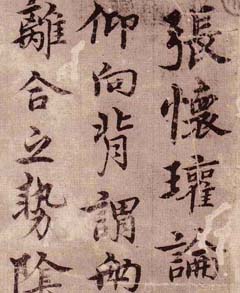 張懷瓘論
仰向背謂兩
離合之勢陰